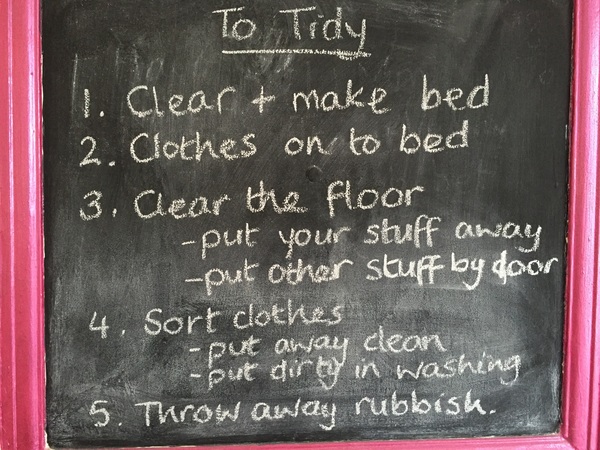 To Tidy
1. Clear + make bed
2. Clothes on to bed
3. Clear the floor
-put your stuff away
-put other stuff by door
4. Sort clothes
-put away clean
-put dirty in washing
5. Throw away rubbish.